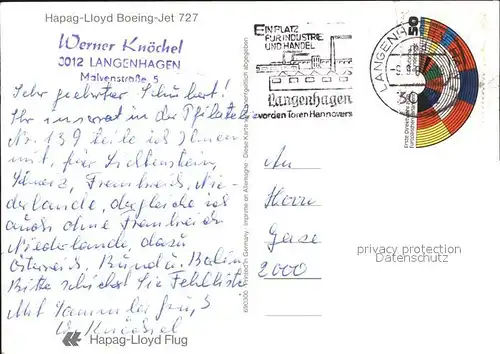 Hapag-Lloyd Boeing-Jet 727
Werner Knöchel
3012 LANGENHAGEN
Malvenstraße 5
Sehr geehrter Schubert!
Ihr Inserat in der Philatelie
Nr. 139 teile ich Ihnen
mit, für Lichtenstein,
Schweiz, Frankreich, Nie-
derlande, dergleiche ich
auch ohne Frankreich
Niederlande, dazu
Österreich, Bund u. Berlin
Bitte schicken Sie Fehlliste
Mit Sammlergruß
W. Knöchel
Hapag-Lloyd Flug
EIN PLATZ
FÜR INDUSTRIE
UND HANDEL
Langenhagen
vor den Toren Hannovers
LANGENHAGEN
30
50
690300 Printed in Germany · Imprimé en Allemagne · Diese Karte wird unentgeltlich abgegeben
An
Herrn
Gase
2000
privacy protection
Datenschutz